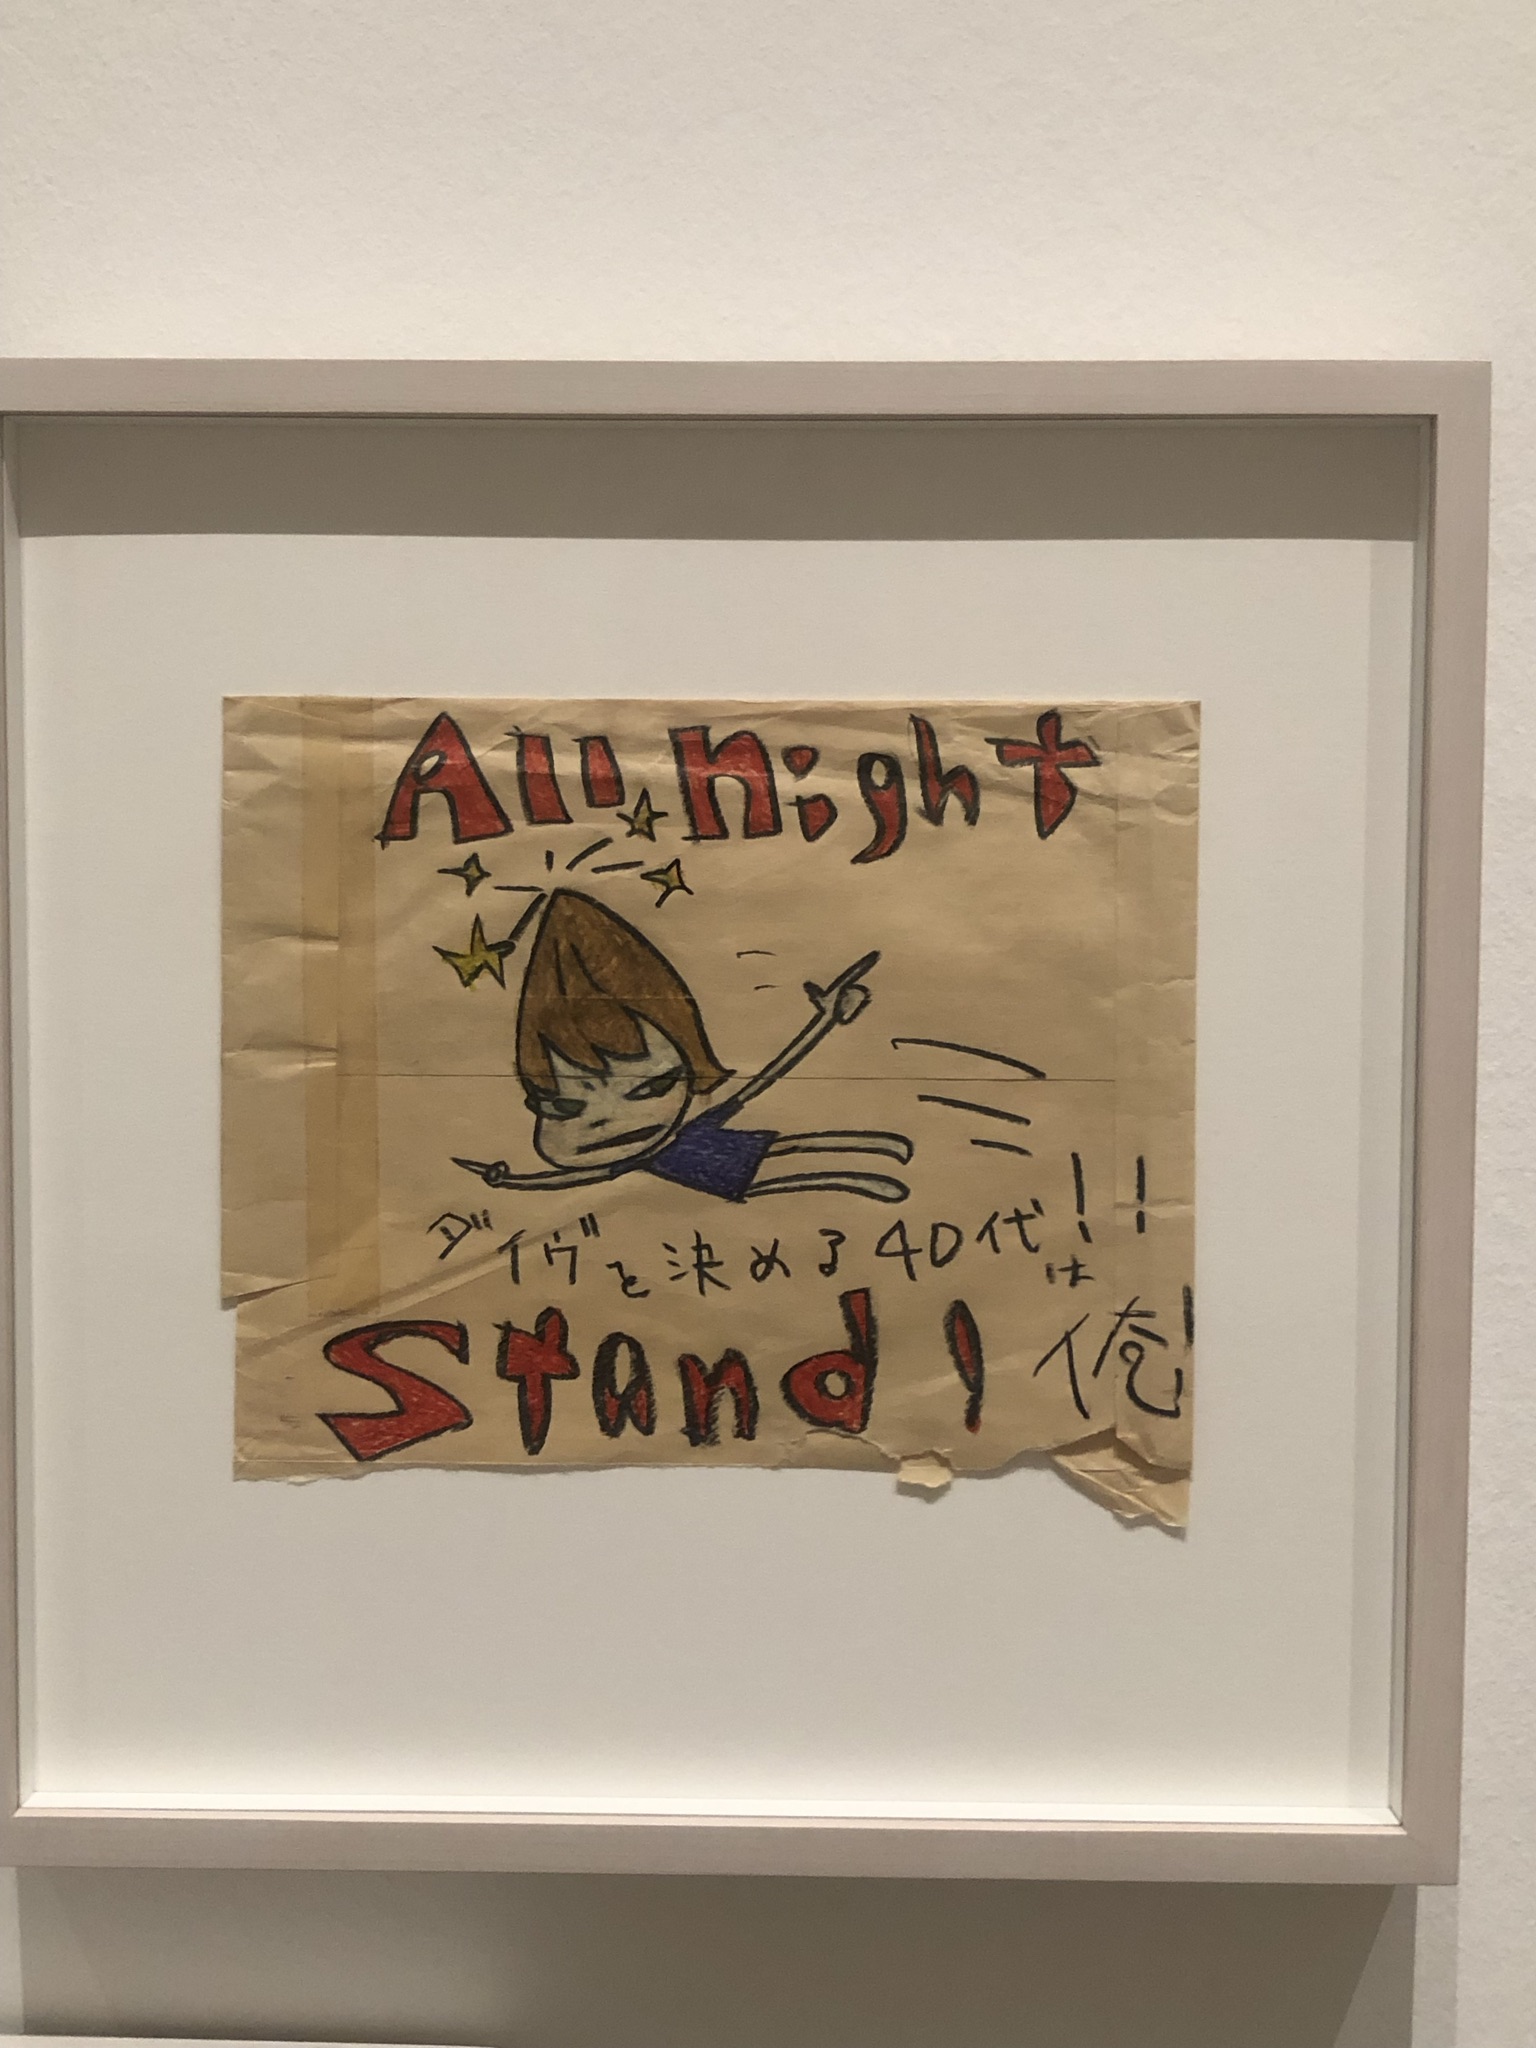 All night
ダイヴを決める40代は!!
俺!
Stand!